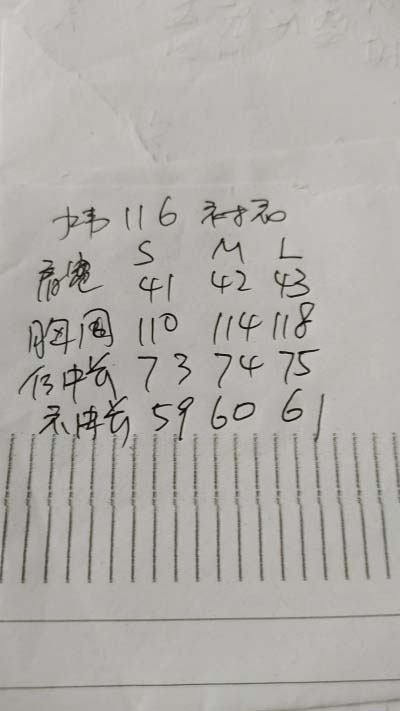 116 衬衫
S M L
肩宽 41 42 43
胸围 110 114 118
后中长 73 74 75
衣袖长 59 60 61